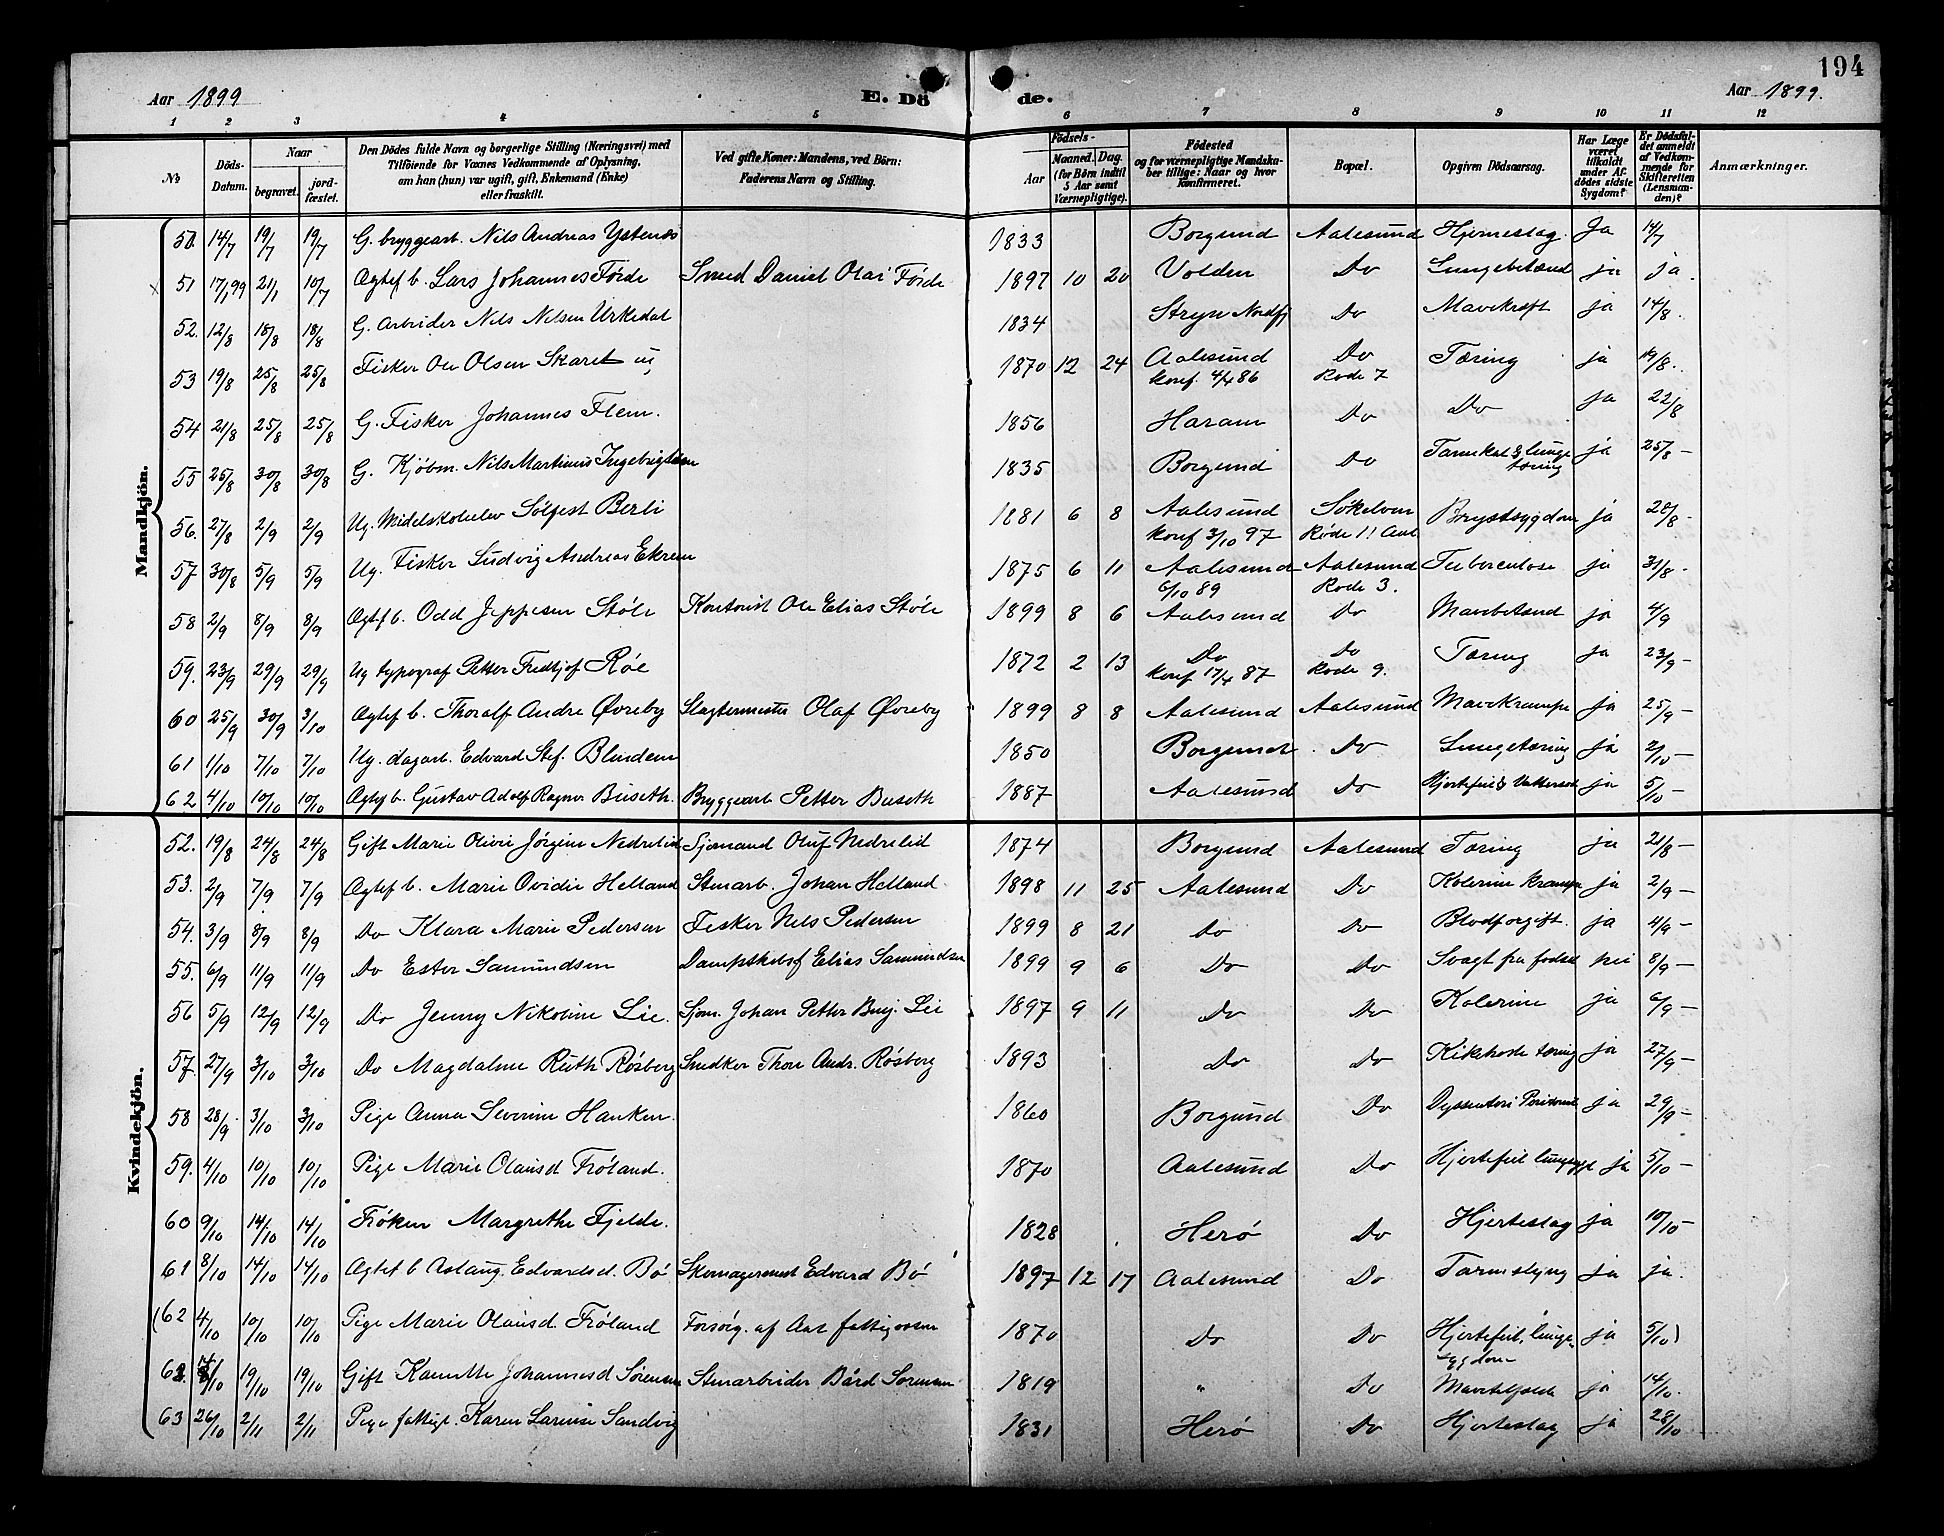 194
Aar 1899
E. Dö
de.
Aar 1899.
1 2 3 4 5 6 7 8 9 10 11 12
No
Döds-Datum.
Naar
begravet.
jord-fæstet.
Den Dödes fulde Navn og borgerlige Stilling (Næringsvei) med
Tilföiende for Vaxnes Vedkommende af Oplysning,
om han (hun) var ugift, gift, Enkemand (Enke)
eller fraskilt.
Ved gifte Koner: Mandens, ved Börn:
Faderens Navn og Stilling.
Födsels-
Aar
Maaned. Dag.
(for Börn indtil
5 Aar samt
Værnepligtige).
Födested
og for værnepligtige Mandska-
ber tillige: Naar og hvor
konfirmeret.
Bopæl.
Opgiven Dödsaarsag.
Har Læge
været
tilkaldt
under Af-
dödes sidste
Sygdom?
Er Dödsfal-
det anmeldt
af Vedkom-
mende for
Skifteretten
(Lensman-
den)?
Anmærkninger.
Mandkjön.
50. 14/7 19/7 19/7 G. bryggearb. Nils Andreas Ystenes 1833 Borgund Aalesund Hjerneslag. Ja 14/7
x 51 17/1 99 21/1 10/7 Ægtef b. Lars Johannes Förde Smed Daniel Olai Förde 1897 10 20 Volden Do Lungebetænd ja ja.
52. 12/8 18/8 18/8 G. Arbeider Nils Nilsen Urkedal 1834 Stryn Nordfj Do Mavekræft ja 14/8.
53 19/8 25/8 25/8 Fisker Ole Olsen Skaret ug 1870 12 24 Aalesund Do Tæring ja 19/8.
konf. 4/4 86 Rode 7
54 21/8 25/8 25/8 G. Fisker Johannes Flem. 1856 Haram Do Do ja 22/8
55 25/8 30/8 30/8 G. Kjöbm. Nils Martinus Ingebrigtsen 1835 Borgund Do Tarmkat & lunge ja 25/8 -
tæring
56. 27/8 2/9 2/9 Ug. Midelskoleelev Sölfest Berli 1881 6 8 Aalesund Sökelven Brystsygdom ja 28/8 -
konf 3/10 97 Rode 11 Aal
57 30/8 5/9 5/9 Ug. Fisker Ludvig Andreas Ekrem 1875 6 11 Aalesund Aalesund Tuberculose ja 31/8 -
6/10 89 Rode 3.
58 2/9 8/9 8/9 Ægtef b. Odd Jeppesen Stöle Kontorist Ole Elias Stöle 1899 8 6 Aalesund Do Mavebetænd ja 4/9
59. 23/9 29/9 29/9 Ug typograf Petter Fredtjof Röe 1872 2 13 Do Do Tæring ja 23/9 -
konf 17/4 87 Rode 9.
60 25/9 30/9 3/10 Ægtef b. Thoralf Andre Øvreby Slagtermester Olaf Øvreby 1899 8 8 Aalesund Aalesund Mavekrampe ja 25/9 -
61 1/10 7/10 7/10 Ug. dagarb. Edvard Stef. Blindem 1850 Borgund. Do Lungetæring ja 2/10 -
62 4/10 10/10 10/10 Ægtef b. Gustav Adolf Ragnv. Buseth. Bryggearb Petter Buseth 1887 Aalesund Do Hjertefeil & Vattersot ja 5/10 -
Kvindekjön.
52. 19/8 24/8 24/8 Gift Marie Olivie Jörgine Nedrelid Sjömand Oluf Nedrelid 1874 Borgund Aalesund Tæring ja 21/8 -
53. 2/9 7/9 7/9 Ægtef b. Marie Ovidie Helland Stenarb. Johan Helland. 1898 11 25 Aalesund Do Kolerine krampe ja 2/9 -
54. 3/9 8/9 8/9 Do Klara Marie Pedersen Fisker Nils Pedersen 1899 8 21 Do Do Blodforgift. ja 4/9 -
55. 6/9 11/9 11/9 Do Ester Samundsen Elias Samundsen 1899 9 6 Do Do Svagt fra fodsel nei 8/9 -
56 5/9 12/9 12/9 Do Jenny Nikoline Lie. Sjom. Johan Petter Benj. Lie 1897 9 11 Do Do Kolerine ja 6/9 -
57. 27/9 3/10 3/10 Do Magdalene Ruth Rösberg Snedker Thore Andr. Rösberg 1893 Do Do Kikhoste tæring ja 27/9 -
58 28/9 3/10 3/10 Pige Anna Severine Hanken. 1860 Borgund Do Dyssenteri ja 29/9 -
59. 4/10 10/10 10/10 Pige Marie Olausd Fröland. 1870 Aalesund Do Hjertefeil lungesygd ja 5/10 -
60 9/10 14/10 14/10 Fröken Margrethe Fjelde. 1828 Herö Do Hjerteslag ja 10/10 -
61 8/10 14/10 14/10 Ægtef b Aslaug Edvardsd. Bö Skomagermest Edvard Bö 1897 12 17 Aalesund Do Tarmslyng ja ja.
(62 4/10 10/10 10/10 Pige Marie Olausd. Fröland Forsörg. af Aal fattigvæsen 1870 Do Do Hjertefeil, lunge- ja 5/10)
sygdom
62. /10 19/10 19/10 Gift Johannesd Sörensen Stenarbeider Bård Sörensen 1819 " Do ja 14/10.
63 26/10 2/11 2/11 Pige fattigl. Karen Larine Sandvig 1831 Herö Do Hjerteslag ja 28/10